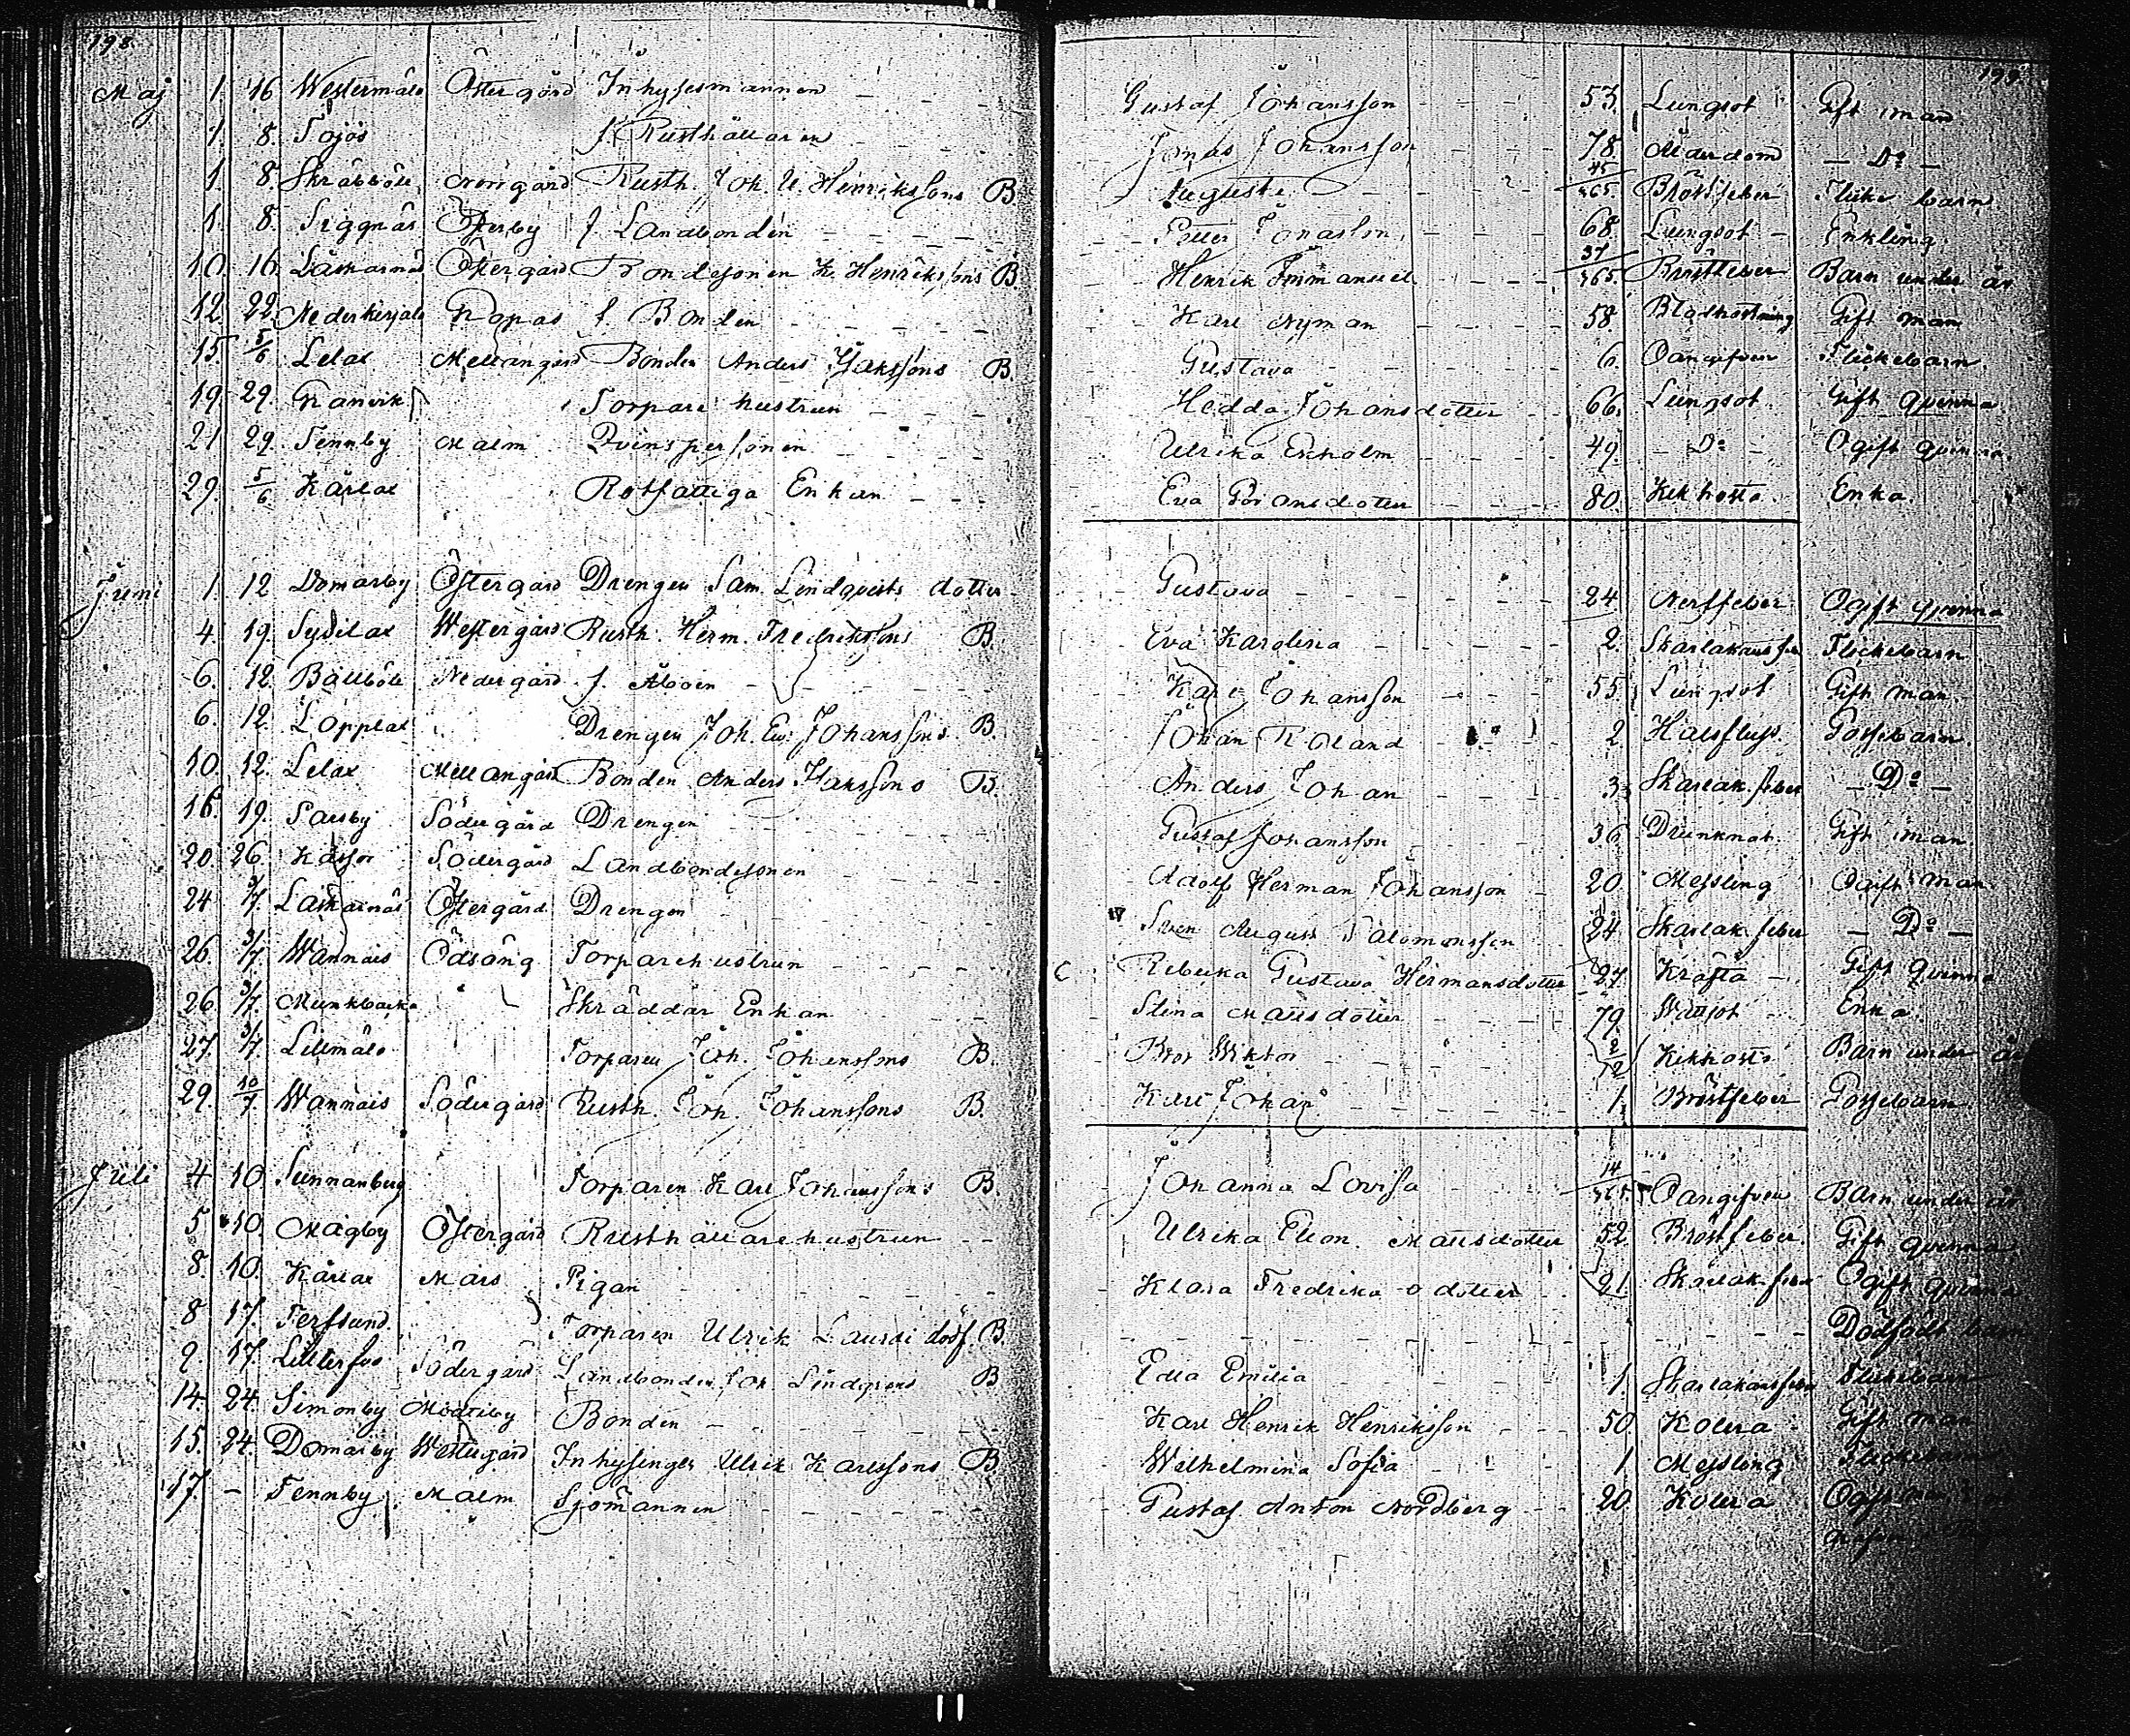 198 199
Maj 1. 16 Westermålo Östergård Inhysesmannen Gustaf Johansson 53. Lungsot Gift man
1. 8. Tojös f. Rusthållaren Jonas Johansson 78. Ålderdom D:o
1. 8. Skräbböle Norrgård Rusth. Joh. U. Henrikssons B. Augusta 45/365. Bröstfeber Flickebarn
1. 8. Siggnäs Österby f. Landbonden Petter Jonasson 68. Lungsot Enkling
10. 16. Laskarnäs Östergård Bondesonen K. Henrikssons B. Henrik Immanuel 37/365. Bröstfeber Barn under år
12. 22. Nederkirjala f. Bonden Karl Nyman 58. Blodhostning Gift man
15. 5/6 Lelax Mellangård Bonden Anders Isakssons B. Gustava 6. Oangifven Flickebarn.
19. 29. Granvik Torpare hustrun Hedda Johansdotter 66. Lungsot Gift qvinna
21 29. Tennby Malm Qvinspersonen Ulrika Ekholm 49. D:o Ogift qvinna.
29. 5/6 Kärlax Rotfattiga Enkan Eva Göransdotter 80. Kikhosta. Enka
Juni 1. 12 Domarby Östergård Drengen Sam. Lindqvists dotter Gustava 24 Nerffeber Ogift qvinna
4. 19. Sydilax Westergård Rusth. Herm. Fredrikssons B. Eva Karolina 2. Skarlakansfeber Flickebarn
6. 12. Bällböle Nedergård f. Åboen Karl Johansson 55 Lungsot Gift man
6. 12. Lopplax Drengen Joh. Ew. Johanssons B. Johan Roland 2 Halsfluss. Gossebarn.
10. 12. Lelax Mellangård Bonden Anders Isakssons B. Anders Johan 3 Skarlak. feber D:o
16. 19. Sorsby Södergård Drengen Gustaf Johansson 36 Drunknat Gift man
20 26 Södergård Landbondesonen Adolf Herman Johansson 20. Messling Ogift man
24 3/7. Laskarnäs Östergård Drengen Sven August Salomonsson 24 Skarlak. feber D:o
26. 3/7 Wannais Ödsäng Torparehustrun Rebecka Gustava Hermansdotter 27. Kräfta Gift qvinna
26 3/7. Munkbacka Skräddar Enkan Stina Matsdotter 79. Wattsot Enka
27. 3/7. Lillmälö Torparen Joh. Johanssons B. Bror Wiktor 2/12 Kikhosta Barn under år
29. 10/7. Wannais Södergård Rusth. Joh. Johanssons B. Karl Johan 1. Bröstfeber Gossebarn
Juli 4 10 Sunnanberg Torparen Karl Johanssons B. Johanna Lovisa 14/365. Oangifven Barn under år
5 10. Mågby Östergård Rusthållarehustrun Ulrika Eleon. Mattsdotter 52. Bröstfeber. Gift qvinna
8. 10. Kärlax Mårs Pigan Klara Fredrika o dotter 21. Skarlak. feber Ogift qvinna
8 17. Terfsund. Torparen Ulrik dödf. B. Dödfödt barn
9. 17. Lilltervo Södergård Landbonden Joh. Lindgrens B Edla Emilia 1. Skarlakansfeber Flickebarn
14. 24. Simonby Bonden Karl Henrik Henriksson 50. Kolera Gift man
15. 24. Domarby Westergård Inhysingen Ulrik Karlssons B Wilhelmina Sofia 1 Messling Flickebarn
17. – Tennby Malm Sjömannen Gustaf Anton Nordberg 20. Kolera